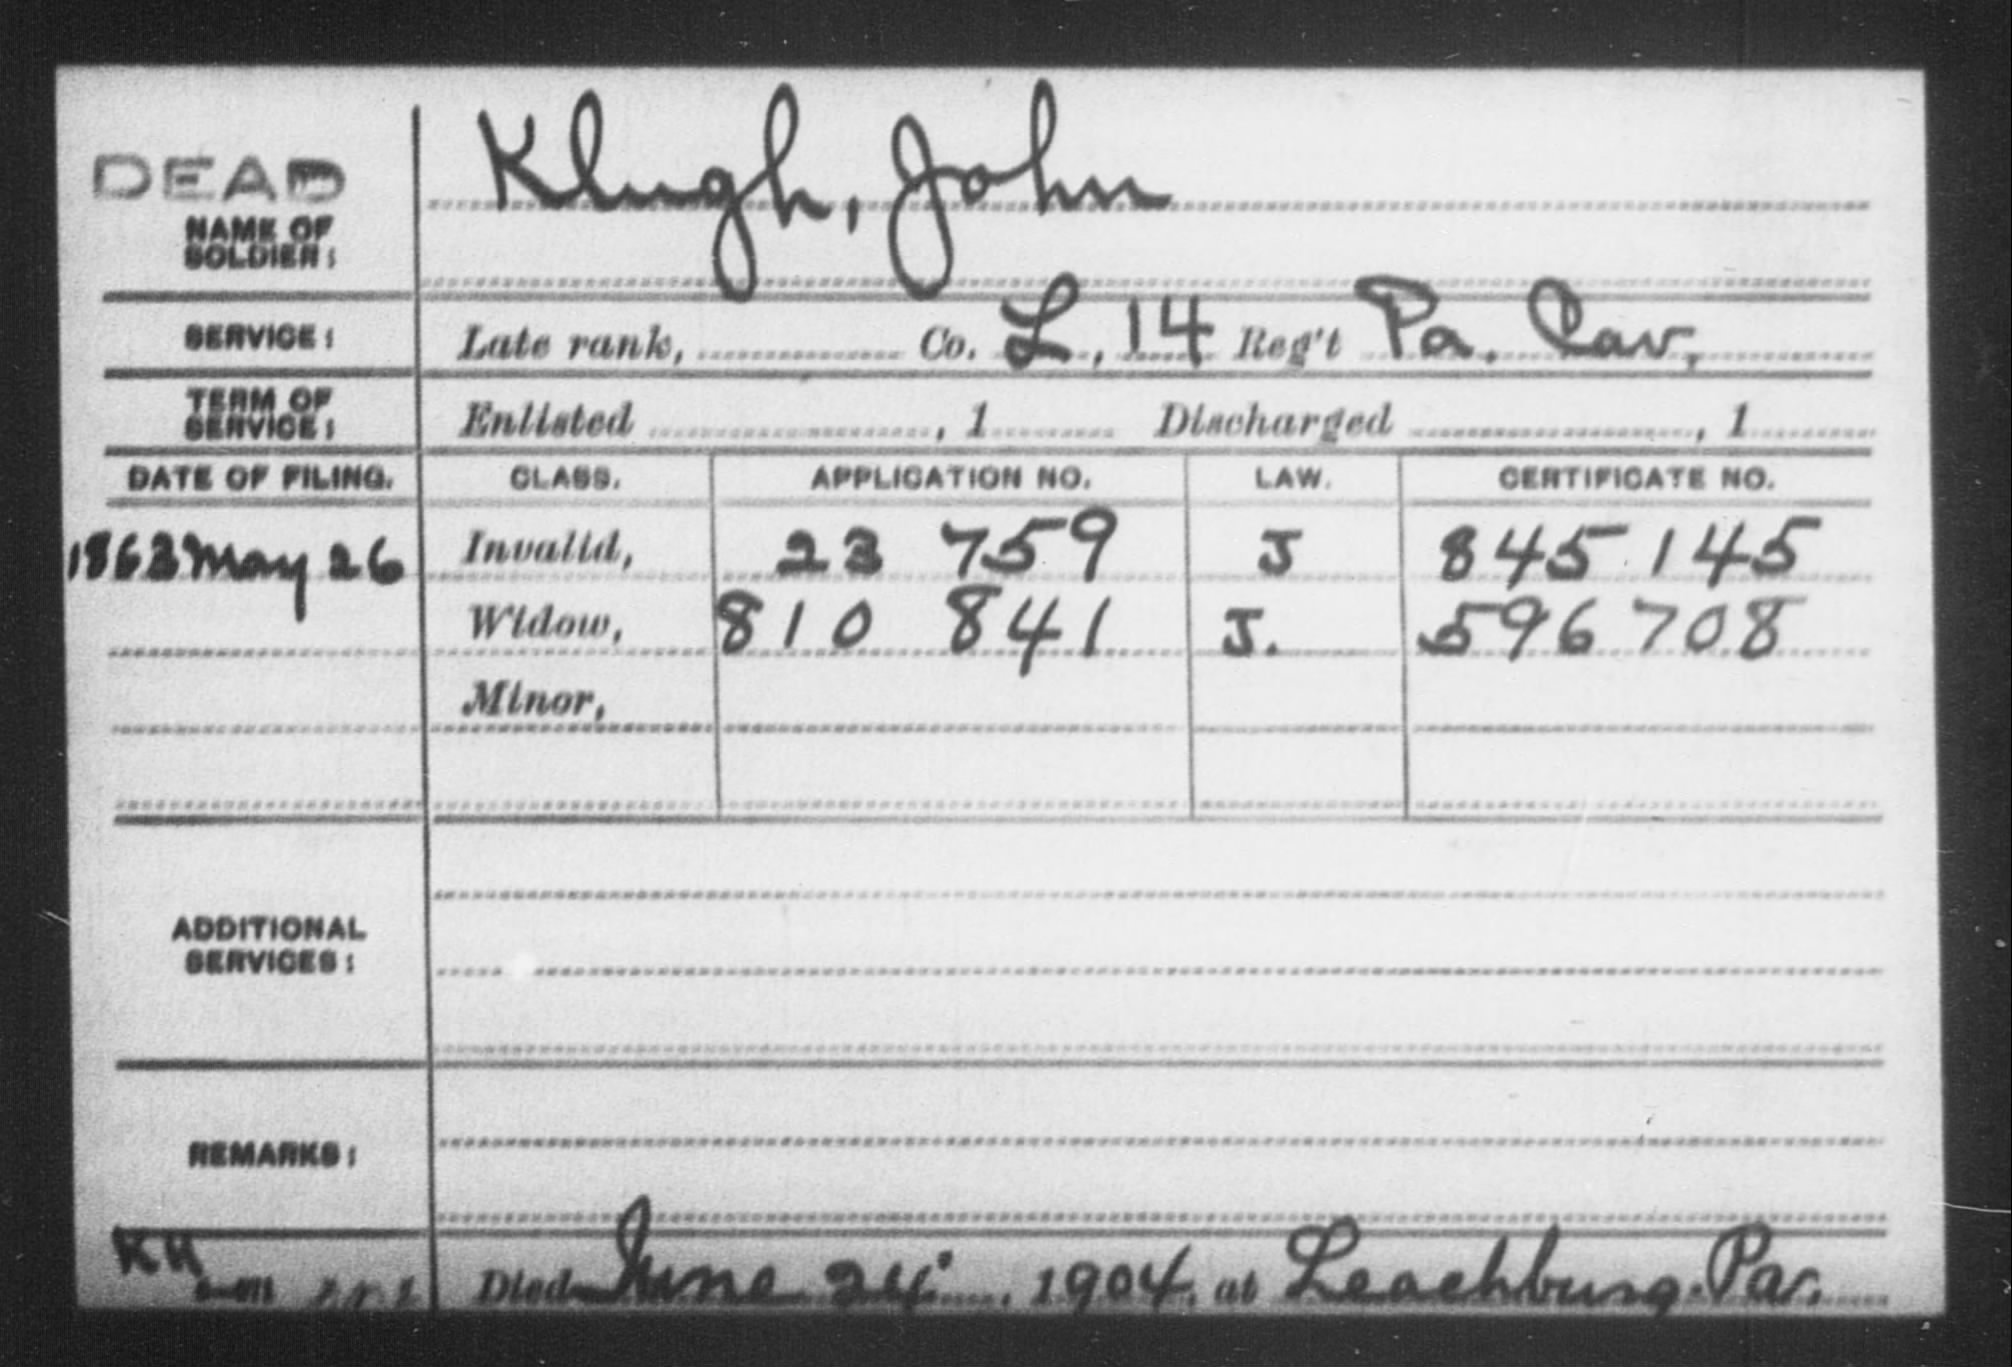 DEAD
Klugh, John
NAME OF
SOLDIER:
SERVICE: Late rank, Co. L, 14 Reg't Pa. Cav.
TERM OF
SERVICE: Enlisted , 1 Discharged , 1
DATE OF FILING. CLASS. APPLICATION NO. LAW. CERTIFICATE NO.
1863 May 26 Invalid, 23 759 J 845 145
Widow, 810 841 J. 596 708
Minor,
ADDITIONAL
SERVICES:
REMARKS:
KH
Died June 24, 1904, at Leachburg. Pa.